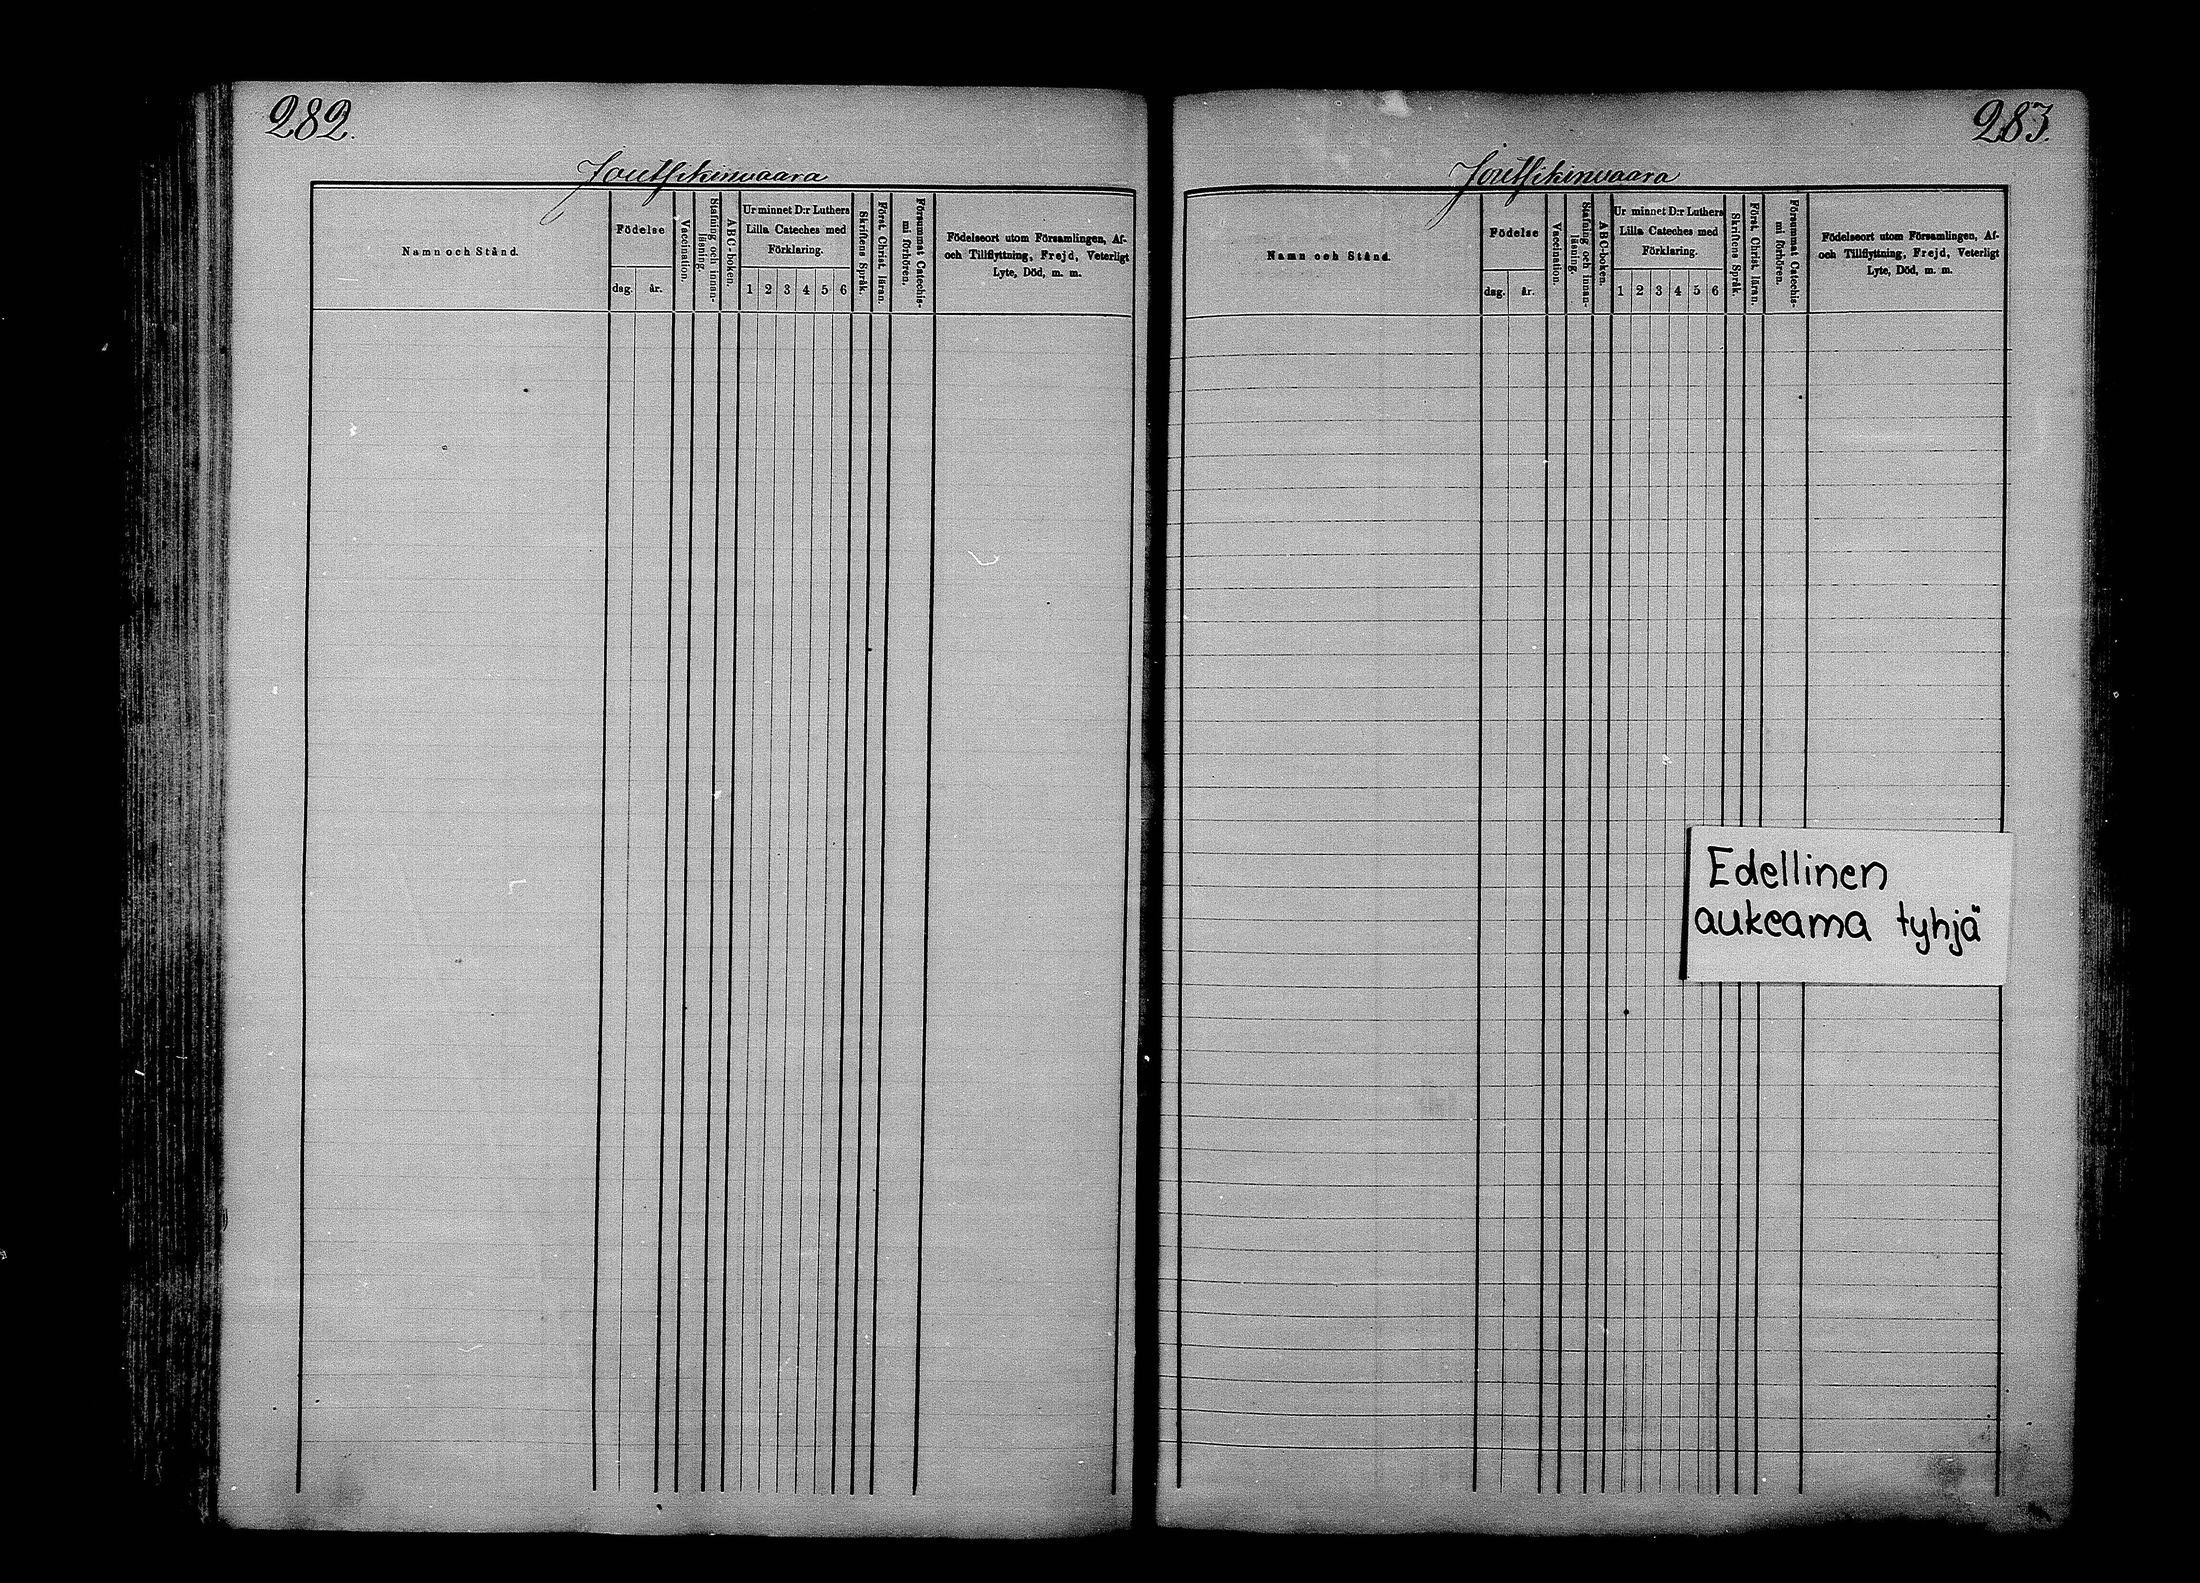 282.
Joutsikinvaara
Namn och Stånd.
Födelse
dag.
år.
Vaccination.
Stafning och innan-
läsning.
ABC-boken.
Ur minnet D:r Luthers
Lilla Cateches med
Förklaring.
1 2 3 4 5 6
Skriftens Språk.
Först. Christ. läran.
Försummat Catechis-
mi förhören.
Födelseort utom Församlingen, Af-
och Tillflyttning, Frejd, Veterligt
Lyte, Död, m. m.
283.
Joutsikinvaara
Namn och Stånd.
Födelse
dag.
år.
Vaccination.
Stafning och innan-
läsning.
ABC-boken.
Ur minnet D:r Luthers
Lilla Cateches med
Förklaring.
1 2 3 4 5 6
Skriftens Språk.
Först. Christ. läran.
Försummat Catechis-
mi förhören.
Födelseort utom Församlingen, Af-
och Tillflyttning, Frejd, Veterligt
Lyte, Död, m. m.
Edellinen
aukeama tyhjä